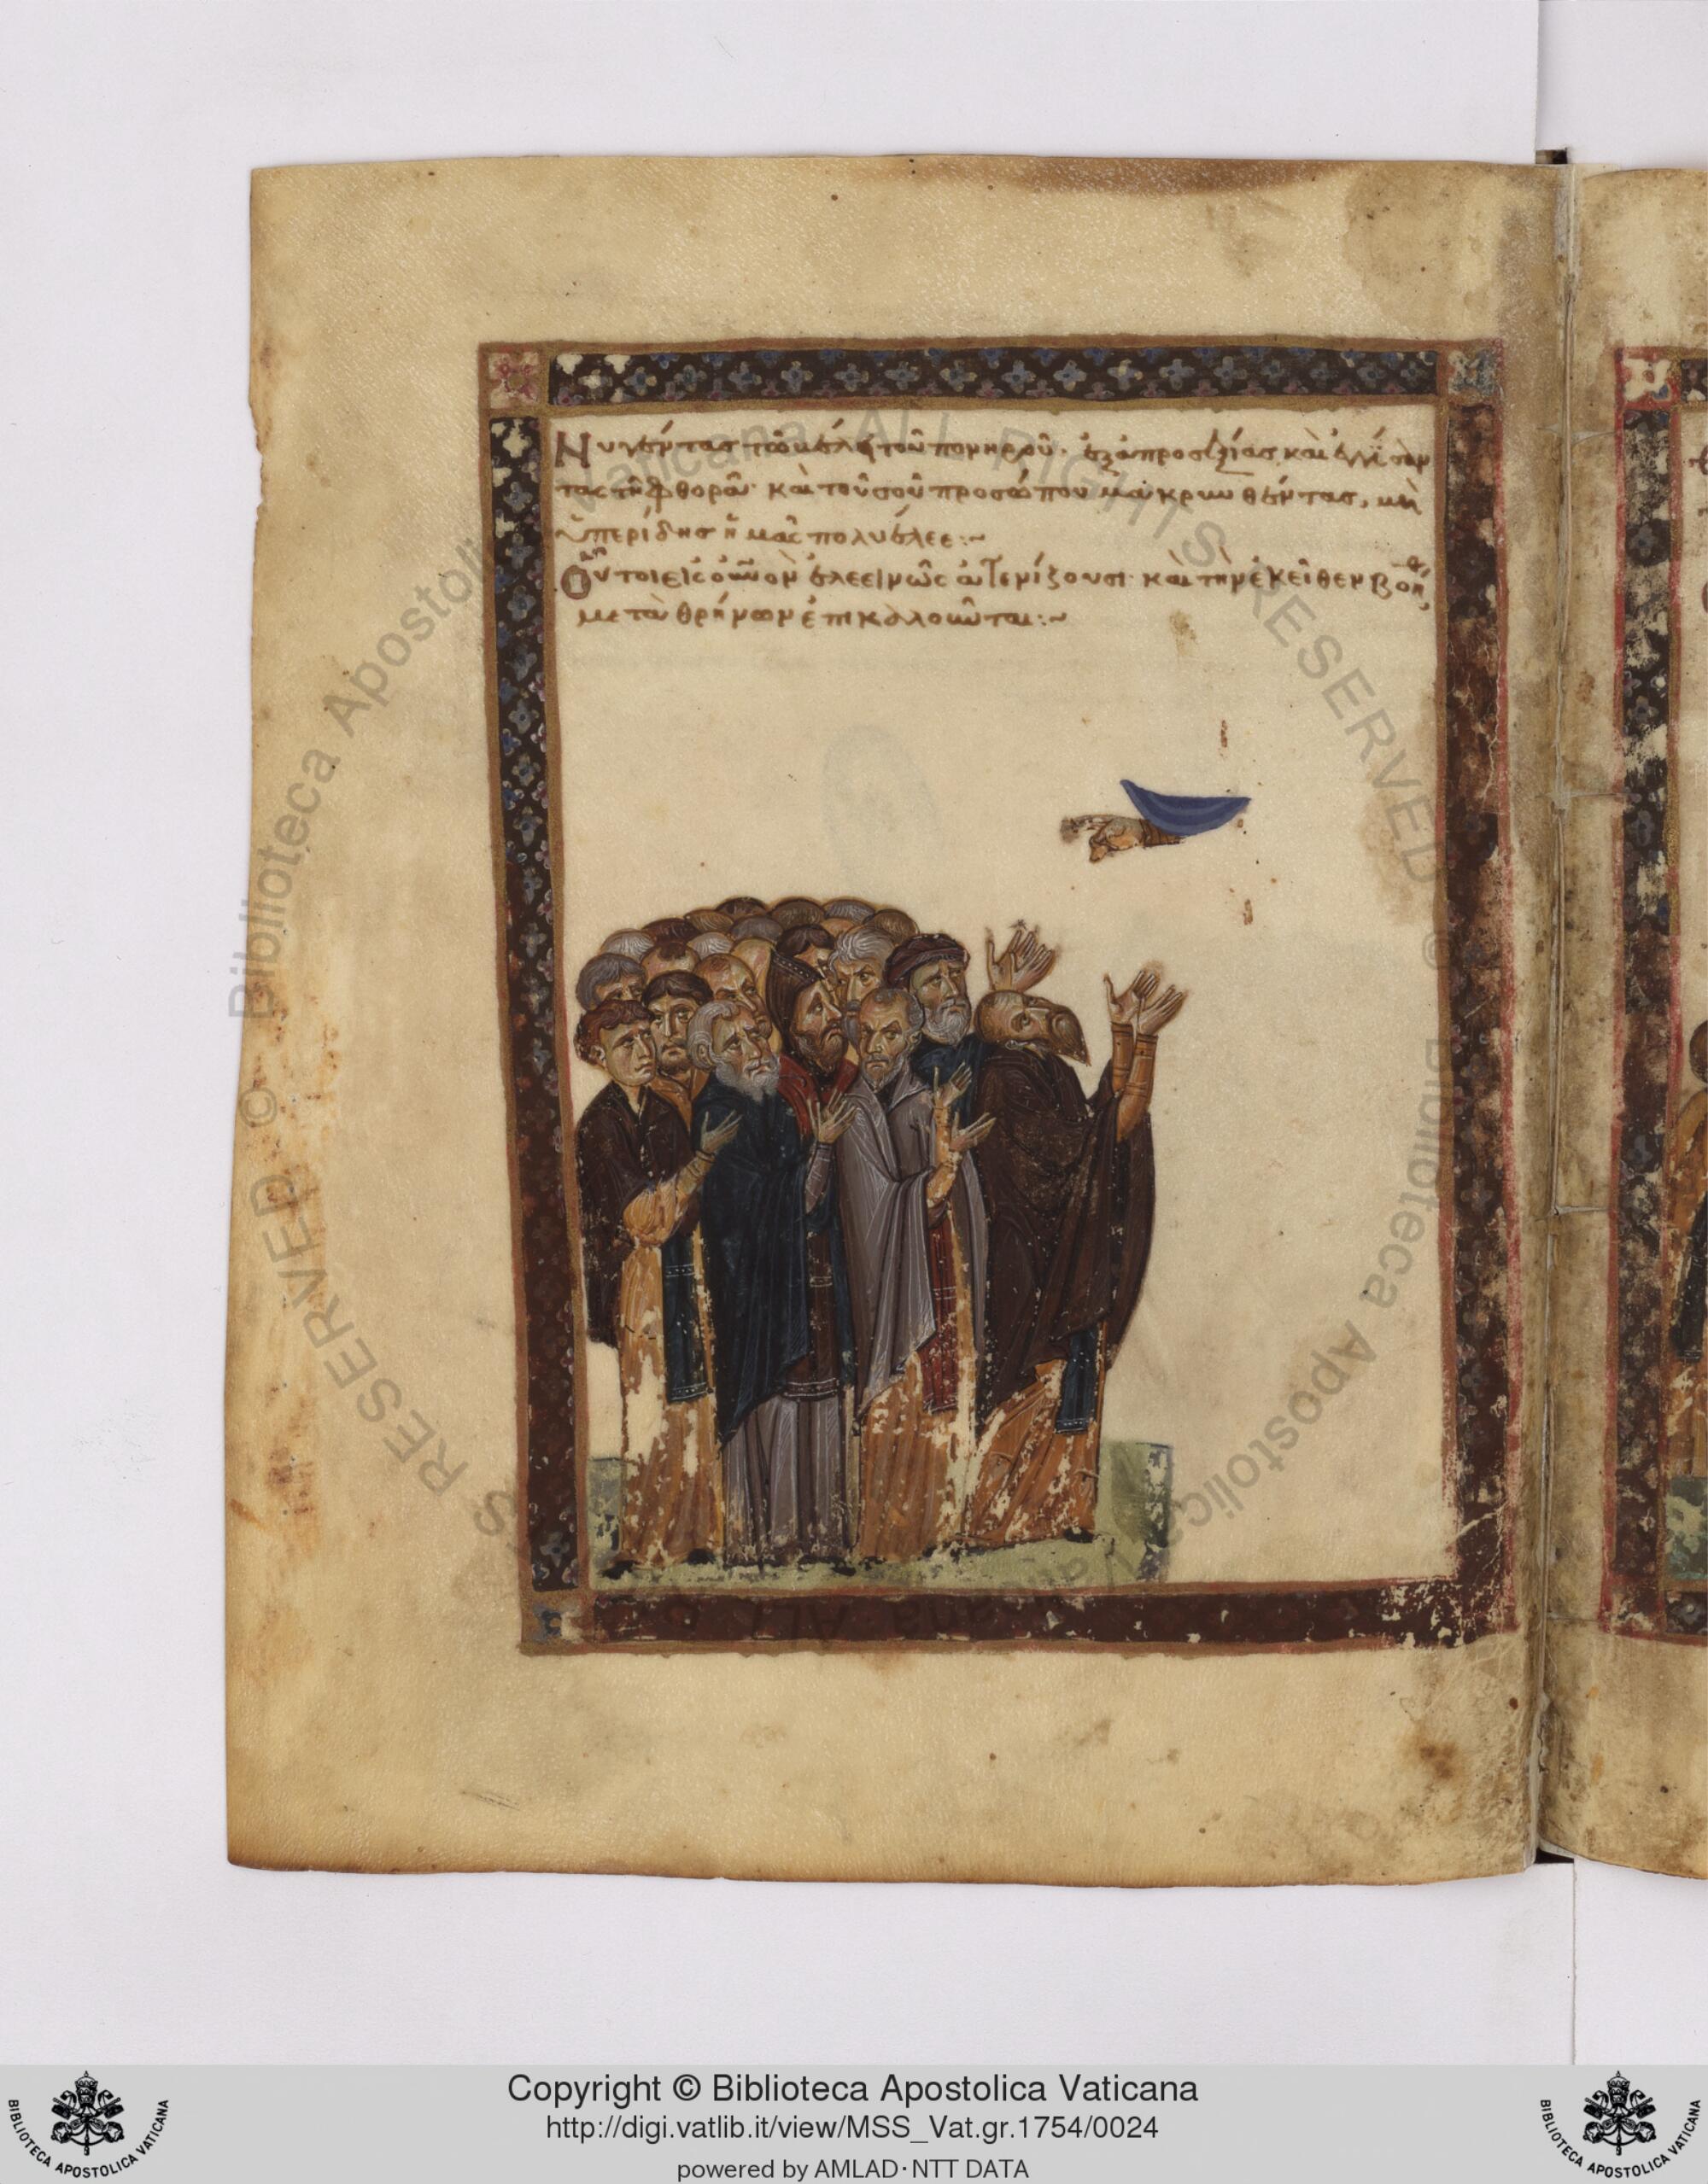 Νυγέντας τῶ μέλει τοῦ πονηροῦ· ἐξ ἀπροσεξίας καὶ
τας τῆ φθορᾶ· καὶ τοῦ σοῦ προσώπου μακρυνθέντας, μὴ
ὑπερίδης ἡμᾶς πολυέλεε:~
Οὗτοι εἰς οὐνὸν ἐλεεινῶς ἀτενίζουσι· καὶ τὴν ἐκεῖθεν βοήθ
μετὰ θρήνων ἐπικαλοῦνται:~
Biblioteca Apostolica Vaticana ALL RIGHTS RESERVED ©
Biblioteca Apostolica Vaticana ALL RIGHTS RESERVED ©
Copyright © Biblioteca Apostolica Vaticana
http://digi.vatlib.it/view/MSS_Vat.gr.1754/0024
powered by AMLAD·NTT DATA
BIBLIOTECA APOSTOLICA VATICANA
BIBLIOTECA APOSTOLICA VATICANA